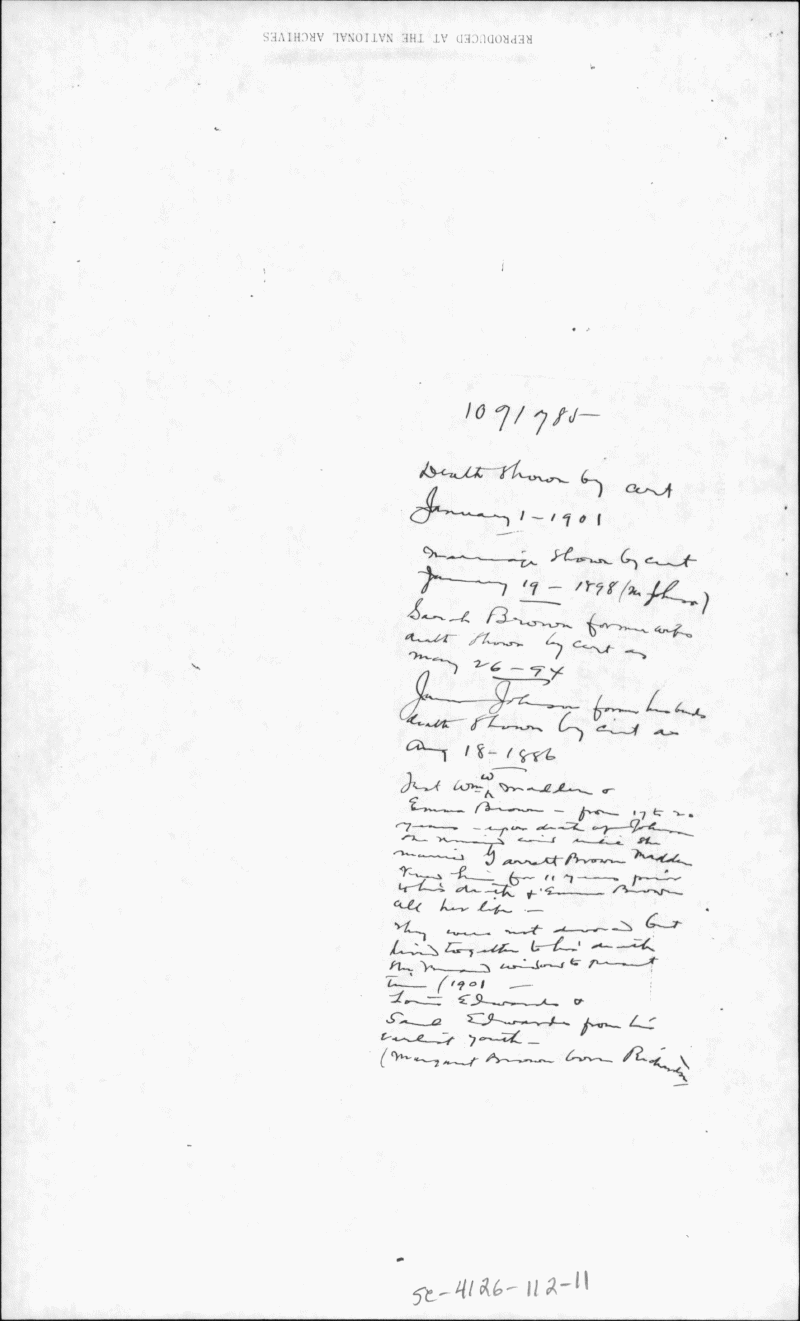 REPRODUCED AT THE NATIONAL ARCHIVES
1091785
Death shown by cert
January 1-1901
Marriage shown by cert
January 19-1898 (Johnson)
Sarah Brown former wife
death shown by cert as
May 26-94
James Johnson former husband
death shown by cert as
Aug 18-1886
Wm W Madden &
Emma Brown - from 17 to 20
years - upon death of Johnson
she until she
married Garrett Brown Madden
Knew him for 11 years prior
to his death & Emma Brown
all her life -
They were not divorced but
lived together to his death
She widow to present
time (1901 -
Louis Edwards &
Saml Edwards from his
earliest youth -
(Margaret Brown born Richardson)
SC-4126-112-11